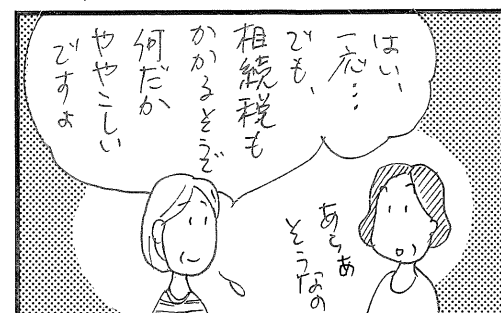 はい、
一応…
でも、
相続税も
かかるそうで
何だか
ややこしい
ですよ
あらあ
そうなの